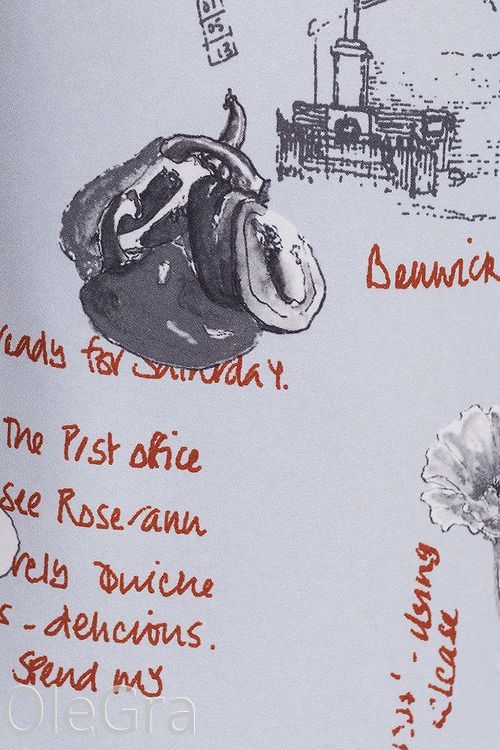 Benwick
ready for Saturday.
The Post office
see Roserann
rely Quiche
s - delicious.
Spend my
- Using
OleGra